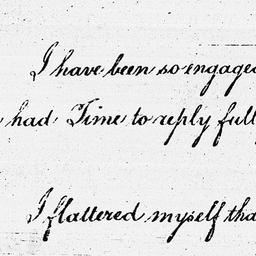 I have been so engaged
had Time to reply full
I flattered myself tha